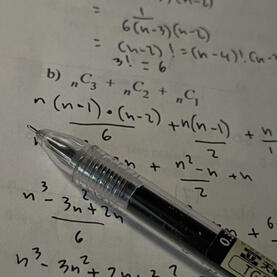 = 1 / 6(n-3)(n-2)
= (n-2)! = (n-4)! (n-
3! = 6
b) nC3 + nC2 + nC1
n(n-1)·(n-2) / 6 + n(n-1) / 2 + n / 1
+ n²-n / 2 + n
n³ - 3n² + 2n / 6
n³ - 3n² +